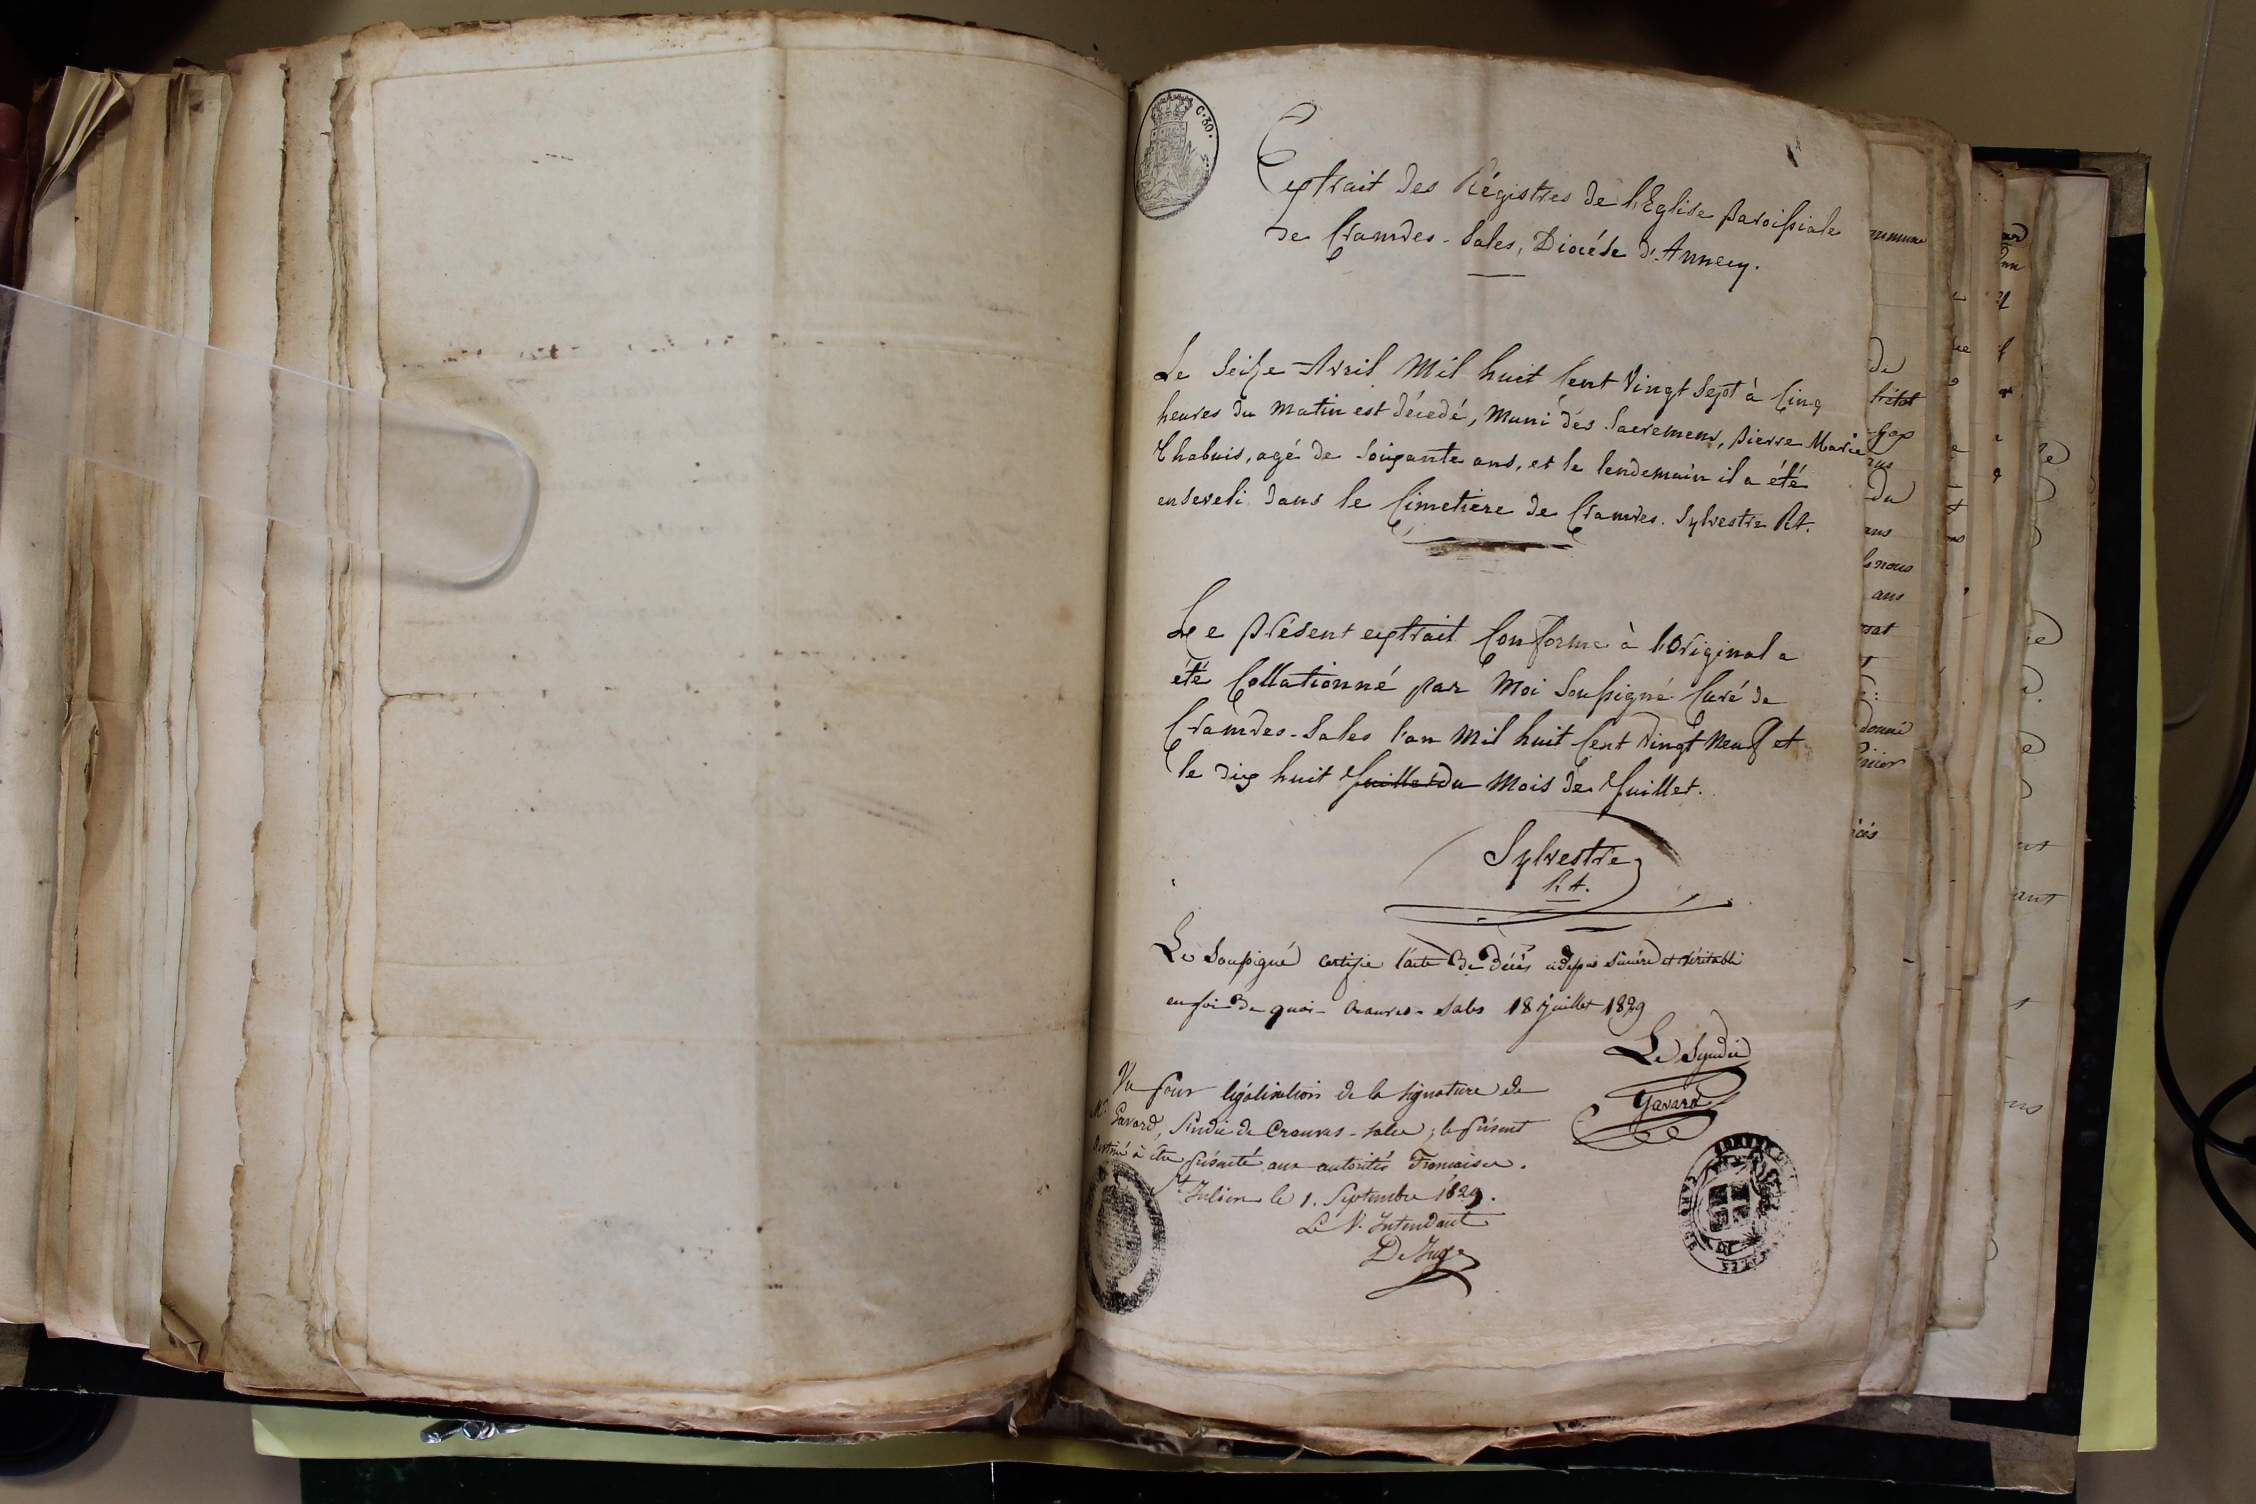 C. 30.
Extrait des Régistres de l'Eglise paroissiale
de Cranves-Sales, Diocése d'Annecy.
Le Seize Avril Mil huit Cent Vingt Sept à Cinq
heures du Matin est décedé, Muni des Sacremens, pierre Marie
Chabuis, agé de Soixante ans, et le lendemain il a été
enseveli dans le Cimetiere de Cranves. Sylvestre Rd.
Le présent extrait Conforme à l'Original a
été Collationné par Moi Soussigné Curé de
Cranves-Sales l'an Mil huit Cent Vingt Neuf et
le dix huit Juillet du Mois de Juillet.
Sylvestre
Rd.
Le Soussigné certifie l'acte de décès cidessus sincère et véritable
en foi de quoi - Cranves-Sales 18 juillet 1829
Le Syndic
Gavard
Vu pour légalisation de la signature de
Mr Gavard, Sindic de Cranves-Sales; le présent
destiné à être présenté aux autorités Françaises.
St Julien le 1. Septembre 1829.
Le V. Intendant
De Juge
ommune
de
du
ans
nous
ans
donné
ant